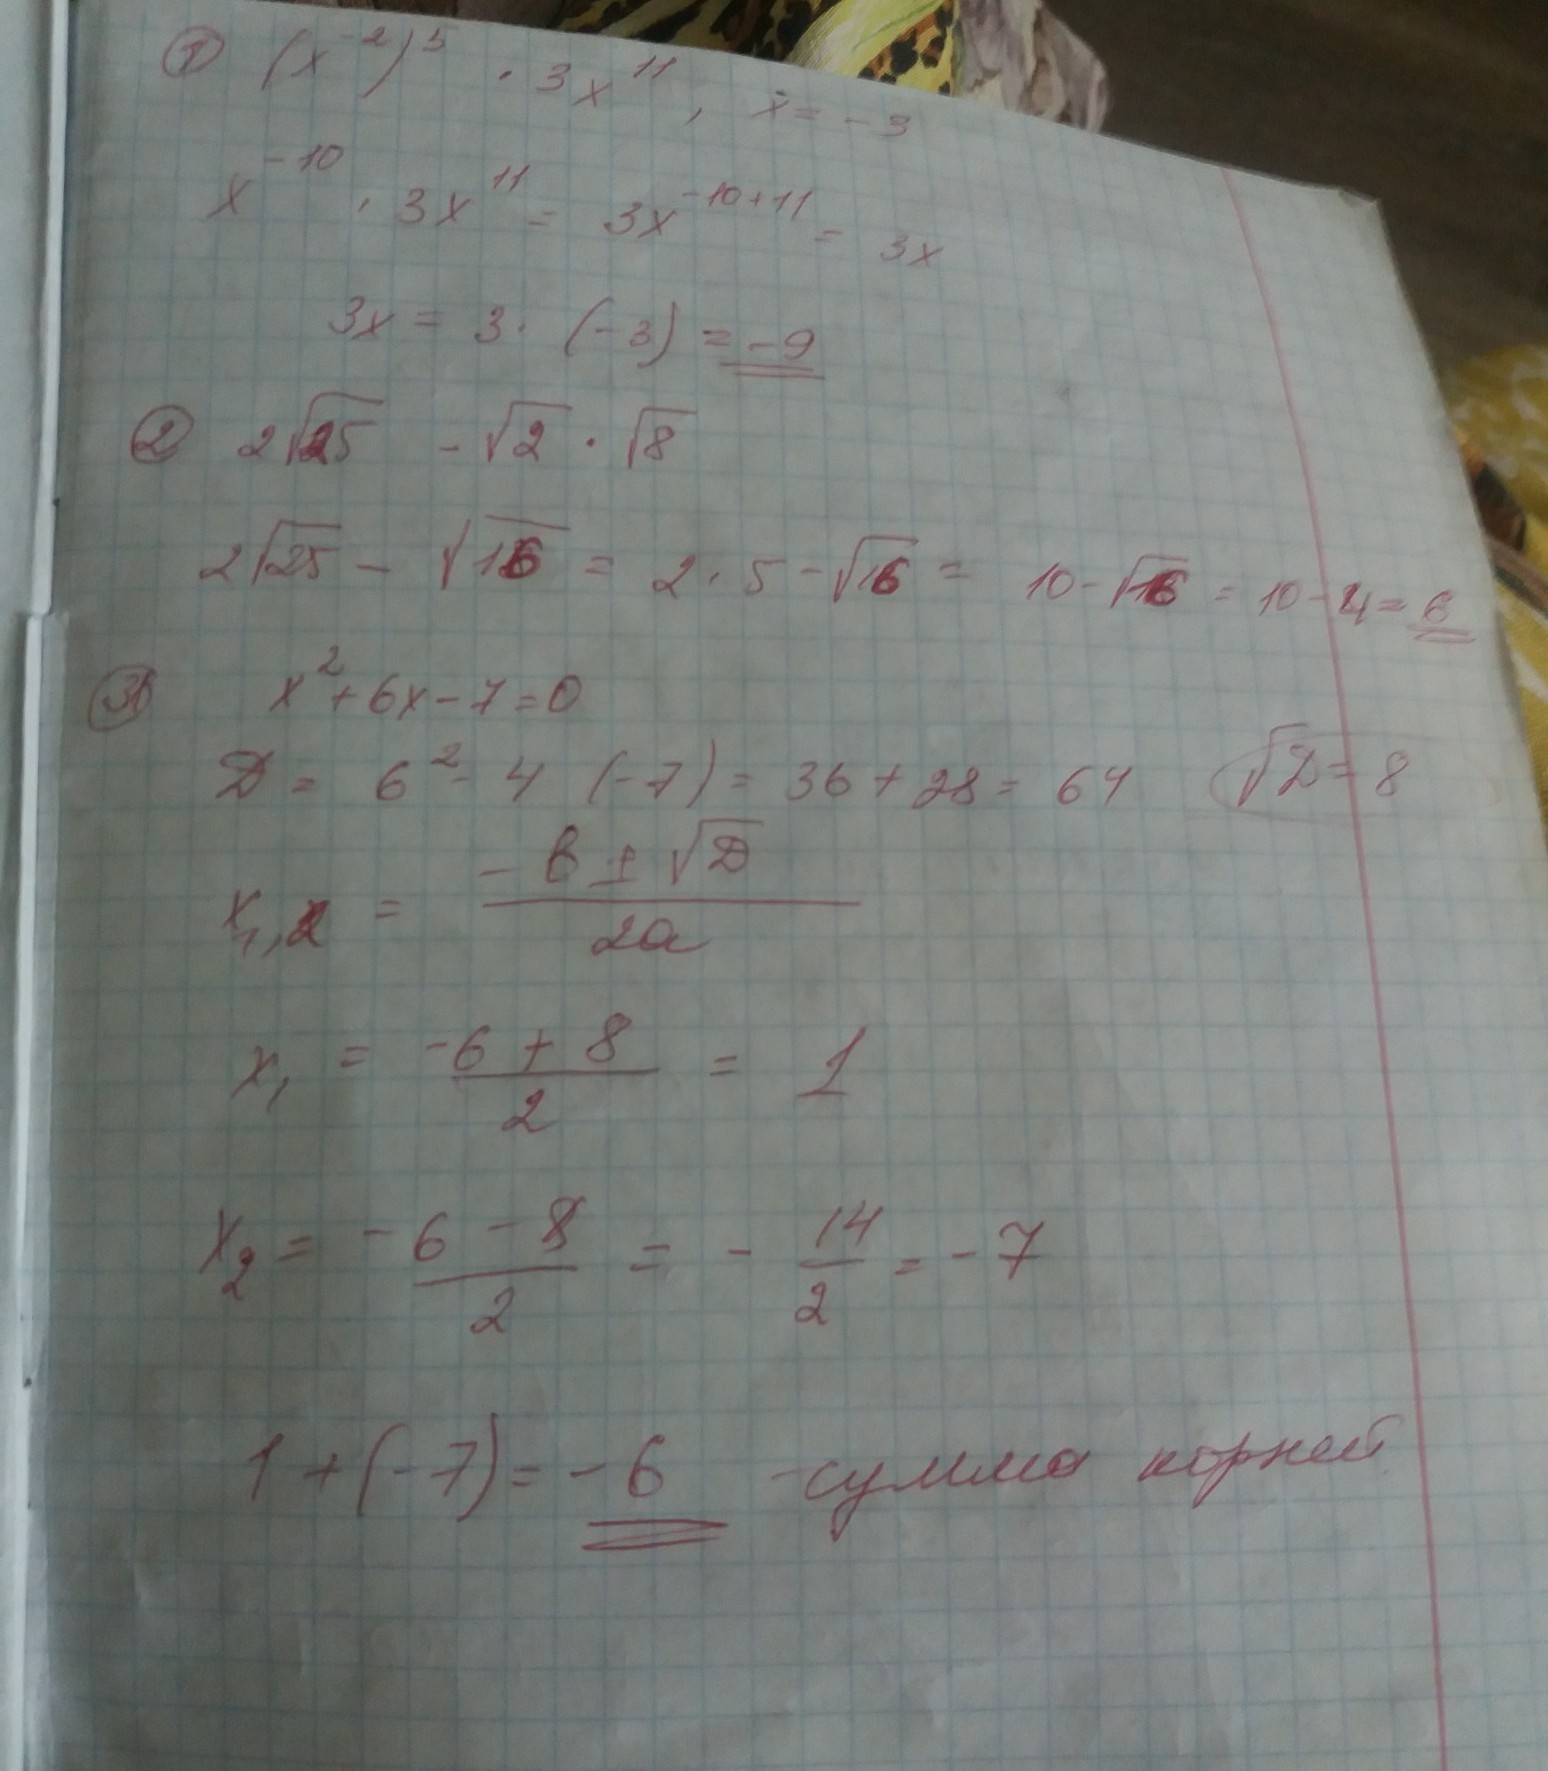 ① (x⁻²)⁵ · 3x¹¹, x = -3
x⁻¹⁰ · 3x¹¹ = 3x⁻¹⁰⁺¹¹ = 3x
3x = 3 · (-3) = -9
② 2√25 - √2 · √8
2√25 - √16 = 2 · 5 - √16 = 10 - √16 = 10 - 4 = 6
③ x² + 6x - 7 = 0
D = 6² - 4 (-7) = 36 + 28 = 64 √D = 8
x₁,₂ = (-b ± √D) / 2a
x₁ = (-6 + 8) / 2 = 1
x₂ = (-6 - 8) / 2 = - 14/2 = -7
1 + (-7) = -6 - сумма корней